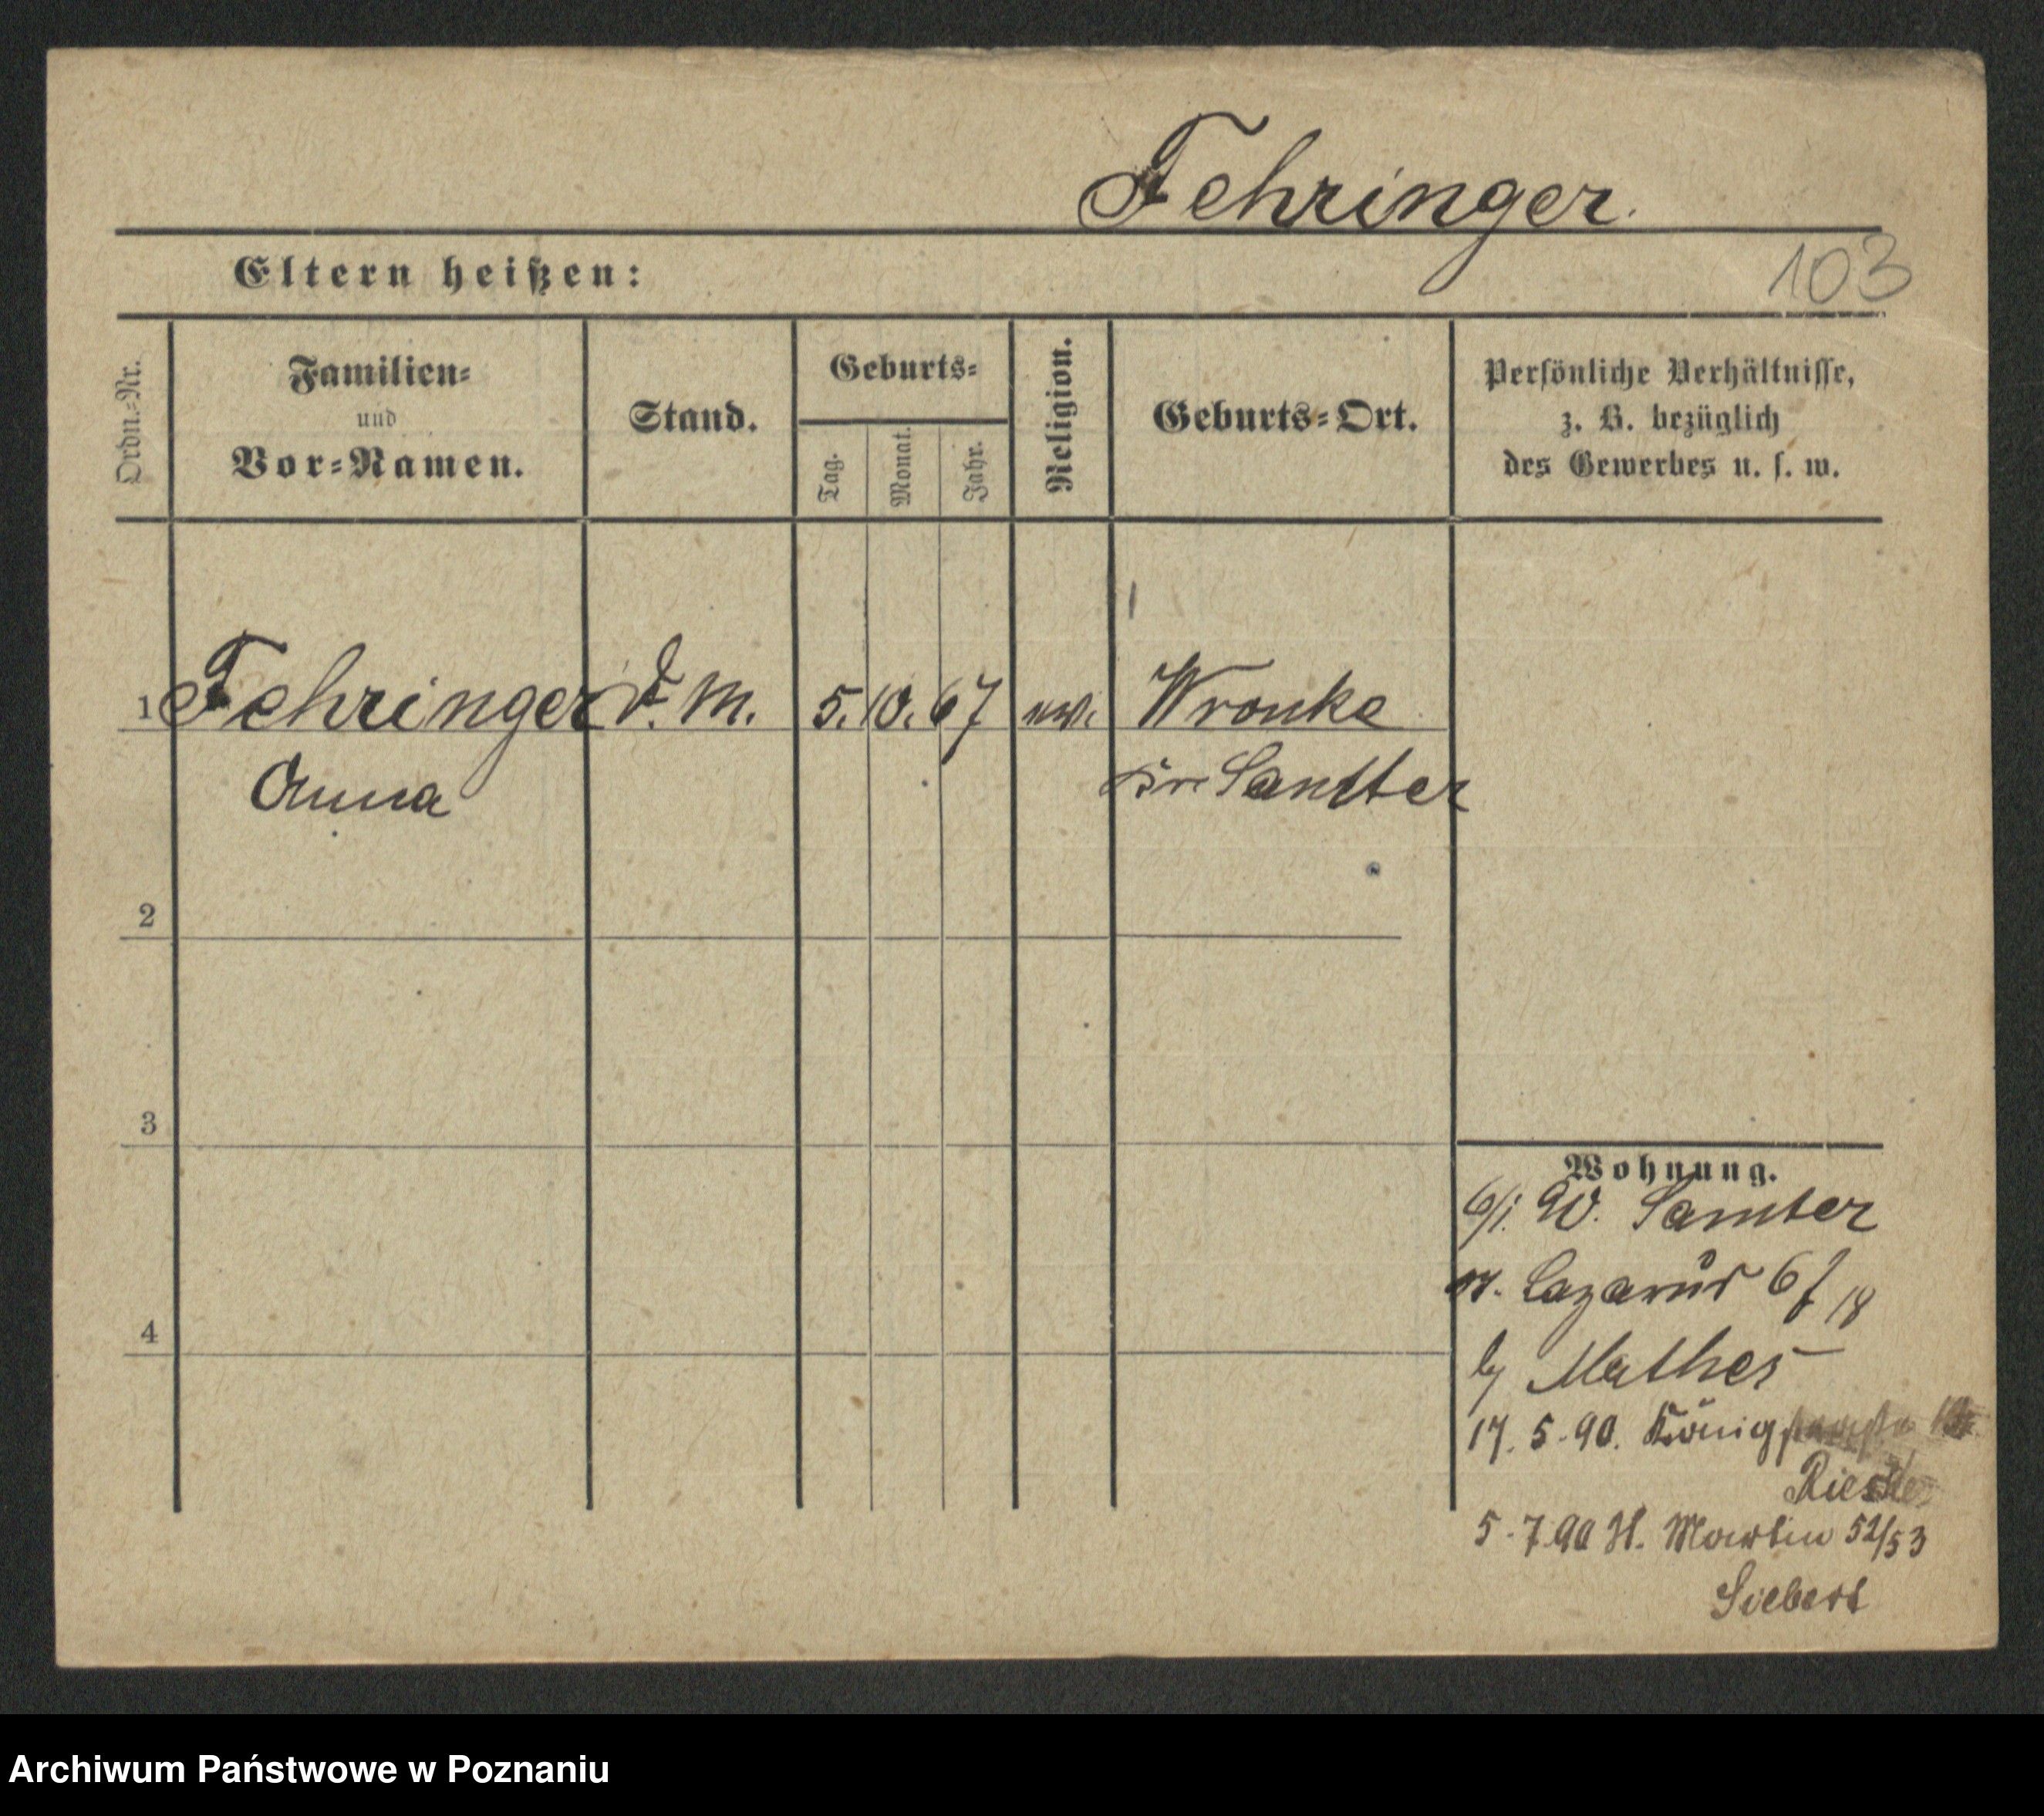 Fehringer.
Eltern heißen:
103
Ordn.-Nr.
Familien-
und
Vor-Namen.
Stand.
Geburts-
Tag.
Monat.
Jahr.
Religion.
Geburts-Ort.
Persönliche Verhältnisse,
z. B. bezüglich
des Gewerbes u. s. w.
1 Fehringer d. M. 5. 10. 67 Wronke
Anna Samter
2
3
4
Wohnung.
Samter
Lazarus 18
Mathes
17. 5. 90.
5. 7. 90 H. Martin 52/53
Siebert
Archiwum Państwowe w Poznaniu